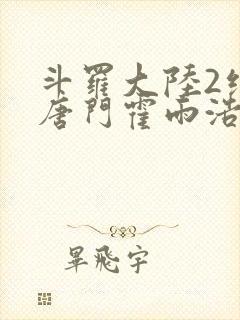 斗羅大陸2
唐門霍雨浩
畢飛宇